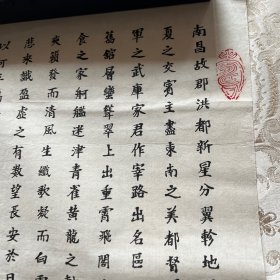 南昌故郡洪都新星分翼軫地
夏之交賓主盡東南之美都督
軍之武庫家君作宰路出名區
舊館層巒聳翠上出重霄飛閣
食之家舸艦迷津青雀黃龍之
爽籟發而清風生纖歌凝而白雲
悲來識盈虛之有數望長安於日
以何年